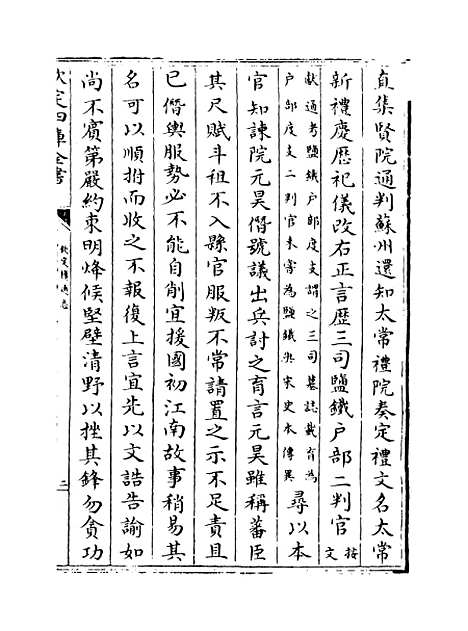 直集賢院通判蘇州還知太常禮院奏定禮文名太常
新禮慶歷祀儀改右正言歷三司鹽鐵户部二判官按文
獻通考鹽鐵户部度支謂之三司墓誌載育為
户部度支二判官未嘗為鹽鐵與宋史本傳異尋以本
官知諫院元昊僭號議出兵討之育言元昊雖稱蕃臣
其尺賦斗租不入縣官服叛不常請置之示不足責且
已僭輿服勢必不能自削宜援國初江南故事稍易其
名可以順拊而收之不報復上言宜先以文誥告諭如
尚不賓第嚴約束明烽候堅壁清野以挫其鋒勿貪功
欽定四庫全書
欽定續通志
二